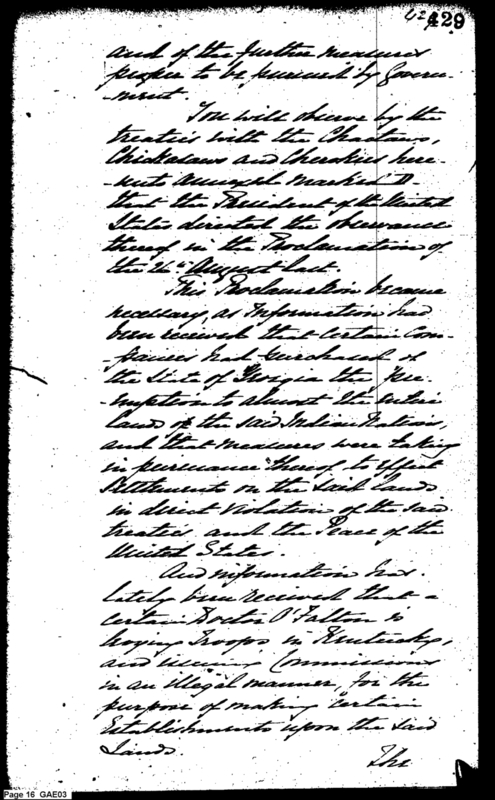 429
and of the further measures
proper to be pursued by Govern-
-ment.
You will observe by the
treaties with the Choctaws,
Chickasaws and Cherokees here-
-unto annexed marked D-
that the President of the United
States directed the observance
thereof in the Proclamation of
the 26th August last.
This Proclamation became
necessary, as Information had
been received that certain Com-
-panies had purchased of
the State of Georgia the Pre-
-emption to almost the entire
lands of the said Indian Nations,
and that measures were taking
in pursuance thereof to effect
Settlements on the said lands
in direct violation of the said
treaties and the Peace of the
United States.
And information has
lately been received that a
certain Doctor O'Fallon is
levying Troops in Kentucky,
and issuing Commissions
in an illegal manner, for the
purpose of making certain
Establishments upon the said
Lands.
The
Page 16 GAE03